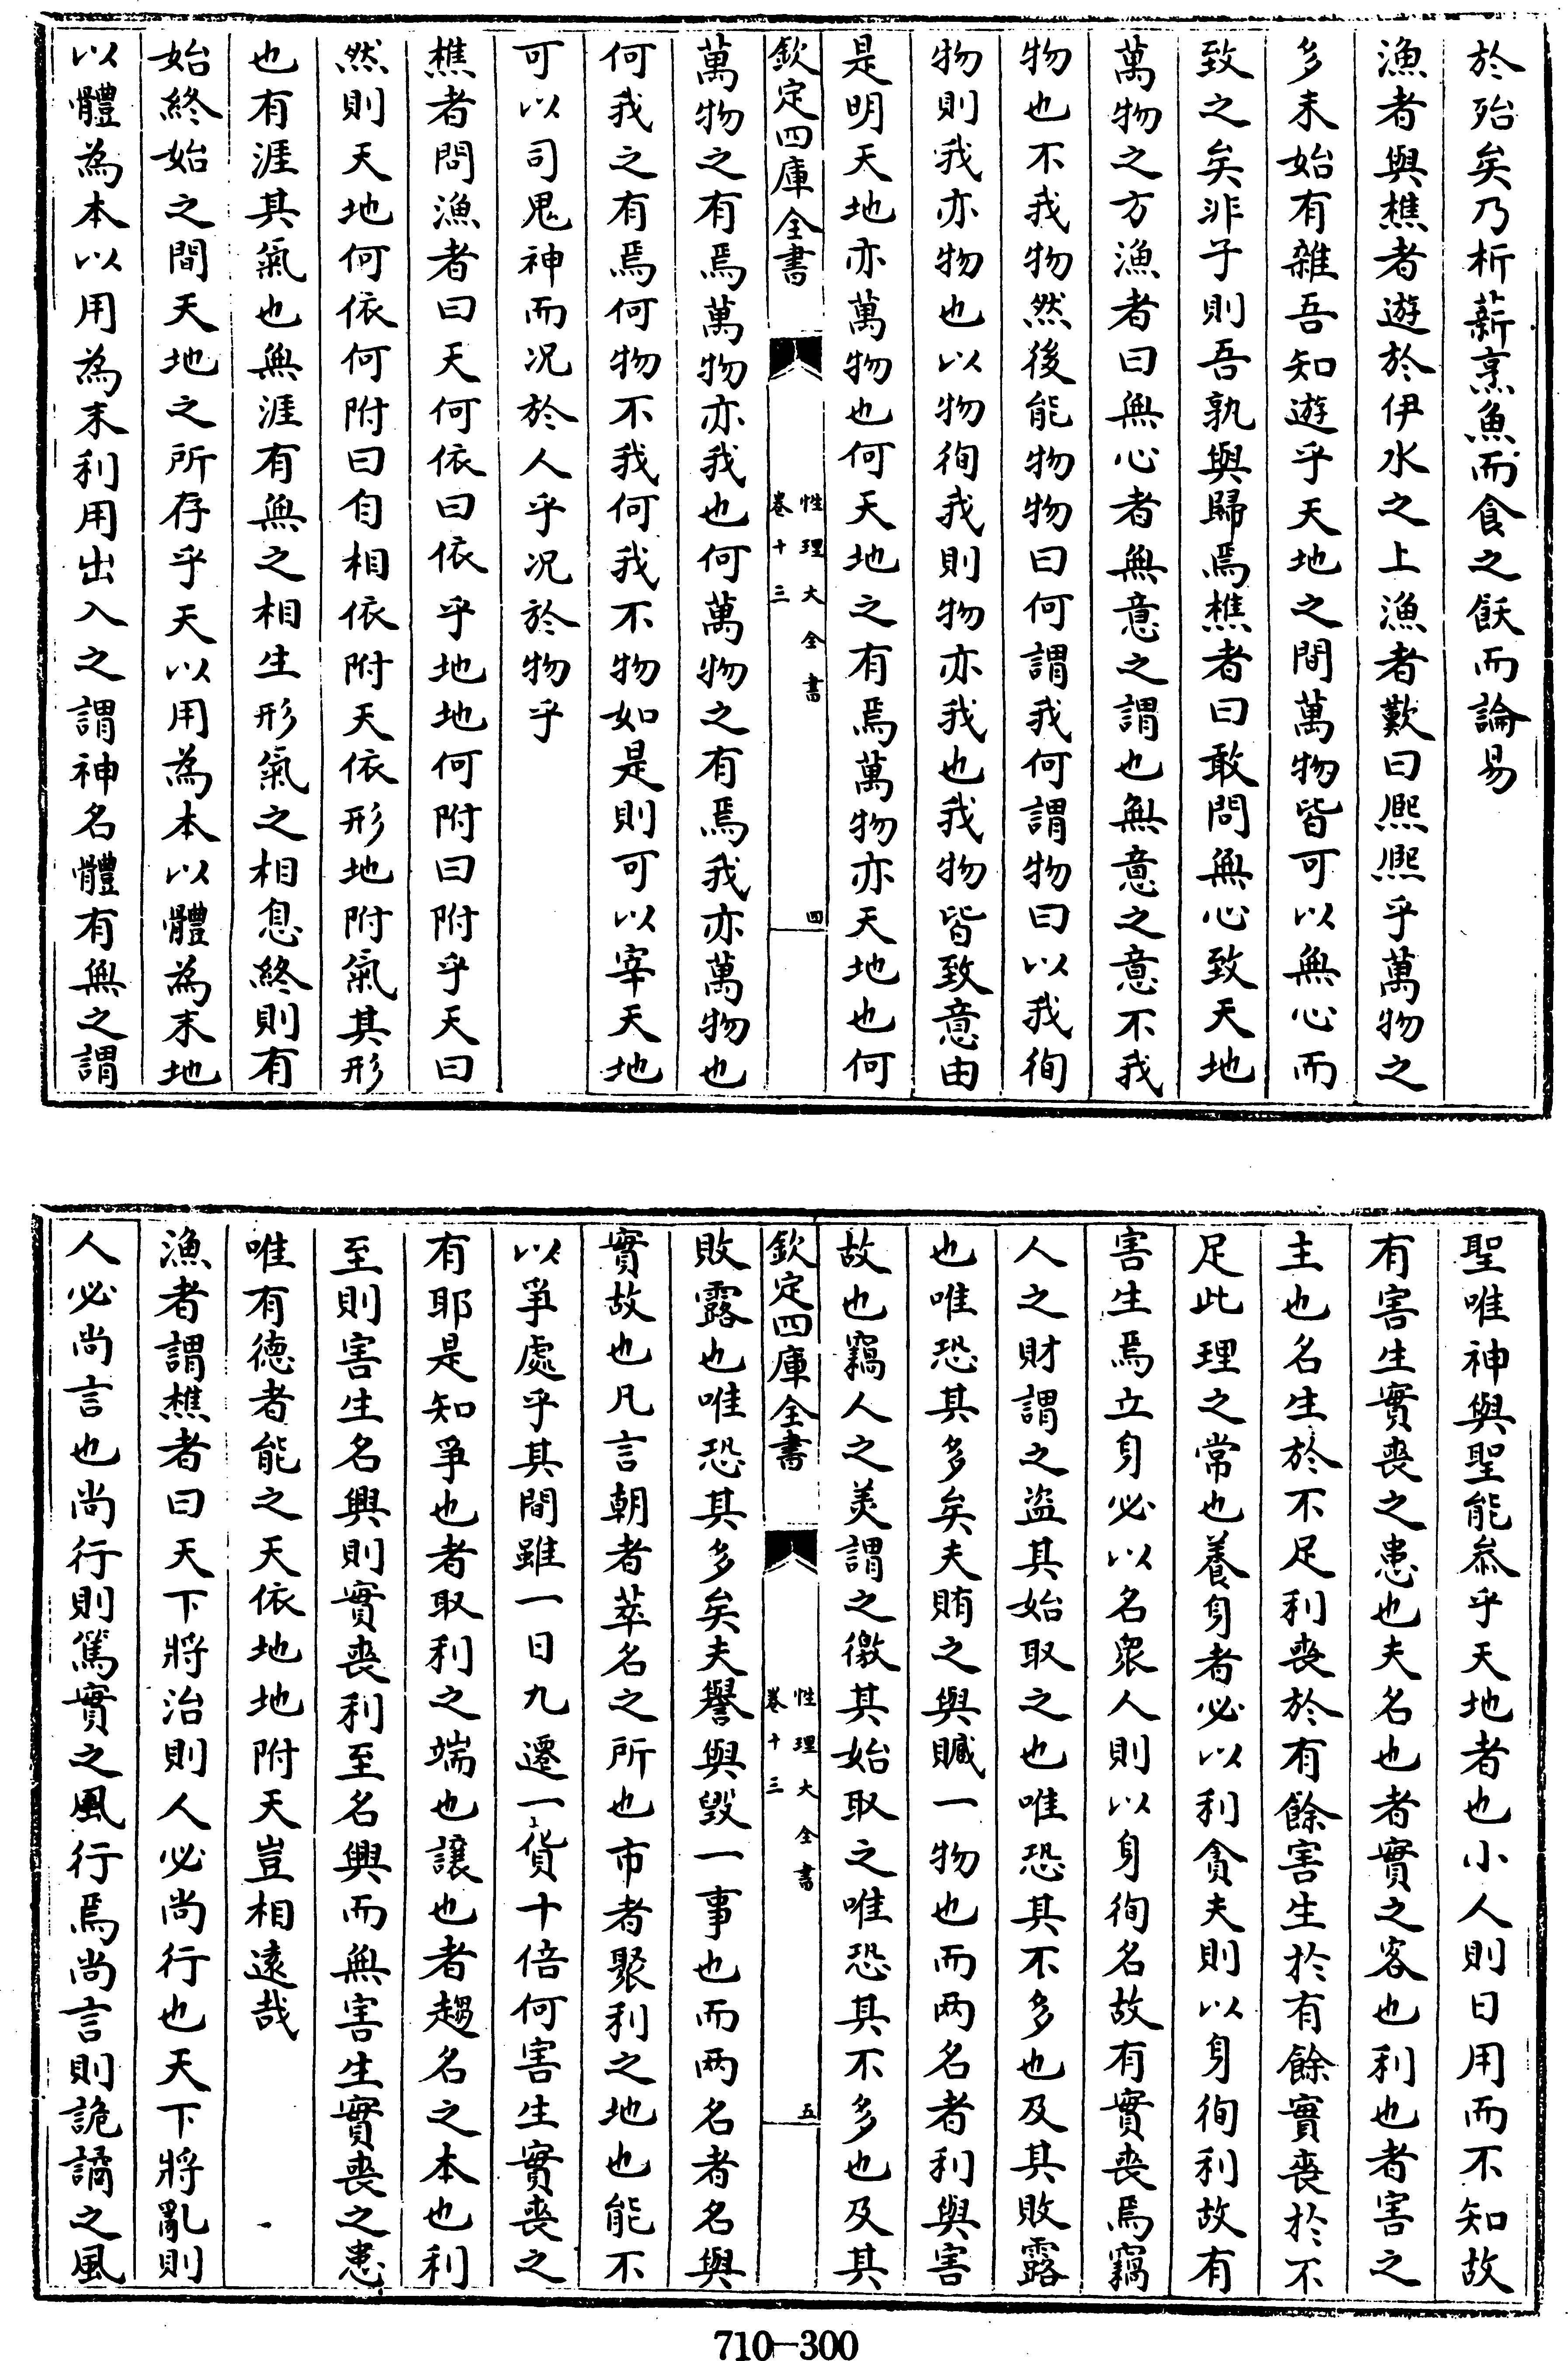 於殆矣乃析薪烹魚而食之飫而論易
漁者與樵者遊於伊水之上漁者歎曰熙熙乎萬物之
多未始有雜吾知遊乎天地之間萬物皆可以無心而
致之矣非子則吾孰與歸焉樵者曰敢問無心致天地
萬物之方漁者曰無心者無意之謂也無意之意不我
物也不我物然後能物物曰何謂我何謂物曰以我徇
物則我亦物也以物徇我則物亦我也我物皆致意由
是明天地亦萬物也何天地之有焉萬物亦天地也何
欽定四庫全書
性理大全書
卷十三
四
萬物之有焉萬物亦我也何萬物之有焉我亦萬物也
何我之有焉何物不我何我不物如是則可以宰天地
可以司鬼神而况於人乎况於物乎
樵者問漁者曰天何依曰依乎地地何附曰附乎天曰
然則天地何依何附曰自相依附天依形地附氣其形
也有涯其氣也無涯有無之相生形氣之相息終則有
始終始之間天地之所存乎天以用為本以體為末地
以體為本以用為末利用出入之謂神名體有無之謂
聖唯神與聖能叅乎天地者也小人則日用而不知故
有害生實喪之患也夫名也者實之客也利也者害之
主也名生於不足利喪於有餘害生於有餘實喪於不
足此理之常也養身者必以利貪夫則以身徇利故有
害生焉立身必以名衆人則以身徇名故有實喪焉竊
人之財謂之盜其始取之也唯恐其不多也及其敗露
也唯恐其多矣夫賄之與贓一物也而两名者利與害
故也竊人之美謂之徼其始取之唯恐其不多也及其
欽定四庫全書
性理大全書
卷十三
五
敗露也唯恐其多矣夫譽與毀一事也而两名者名與
實故也凡言朝者萃名之所也市者聚利之地也能不
以爭處乎其間雖一日九遷一貨十倍何害生實喪之
有耶是知爭也者取利之端也讓也者趨名之本也利
至則害生名興則實喪利至名興而無害生實喪之患
唯有德者能之天依地地附天豈相遠哉
漁者謂樵者曰天下將治則人必尚行也天下將亂則
人必尚言也尚行則篤實之風行焉尚言則詭譎之風
710-300